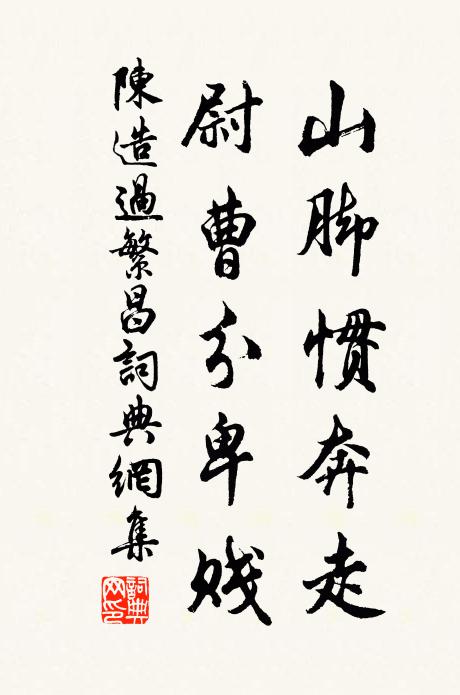 山脚惯奔走
尉曹分卑贱
陳造過繁昌詞典網集
詞典网印